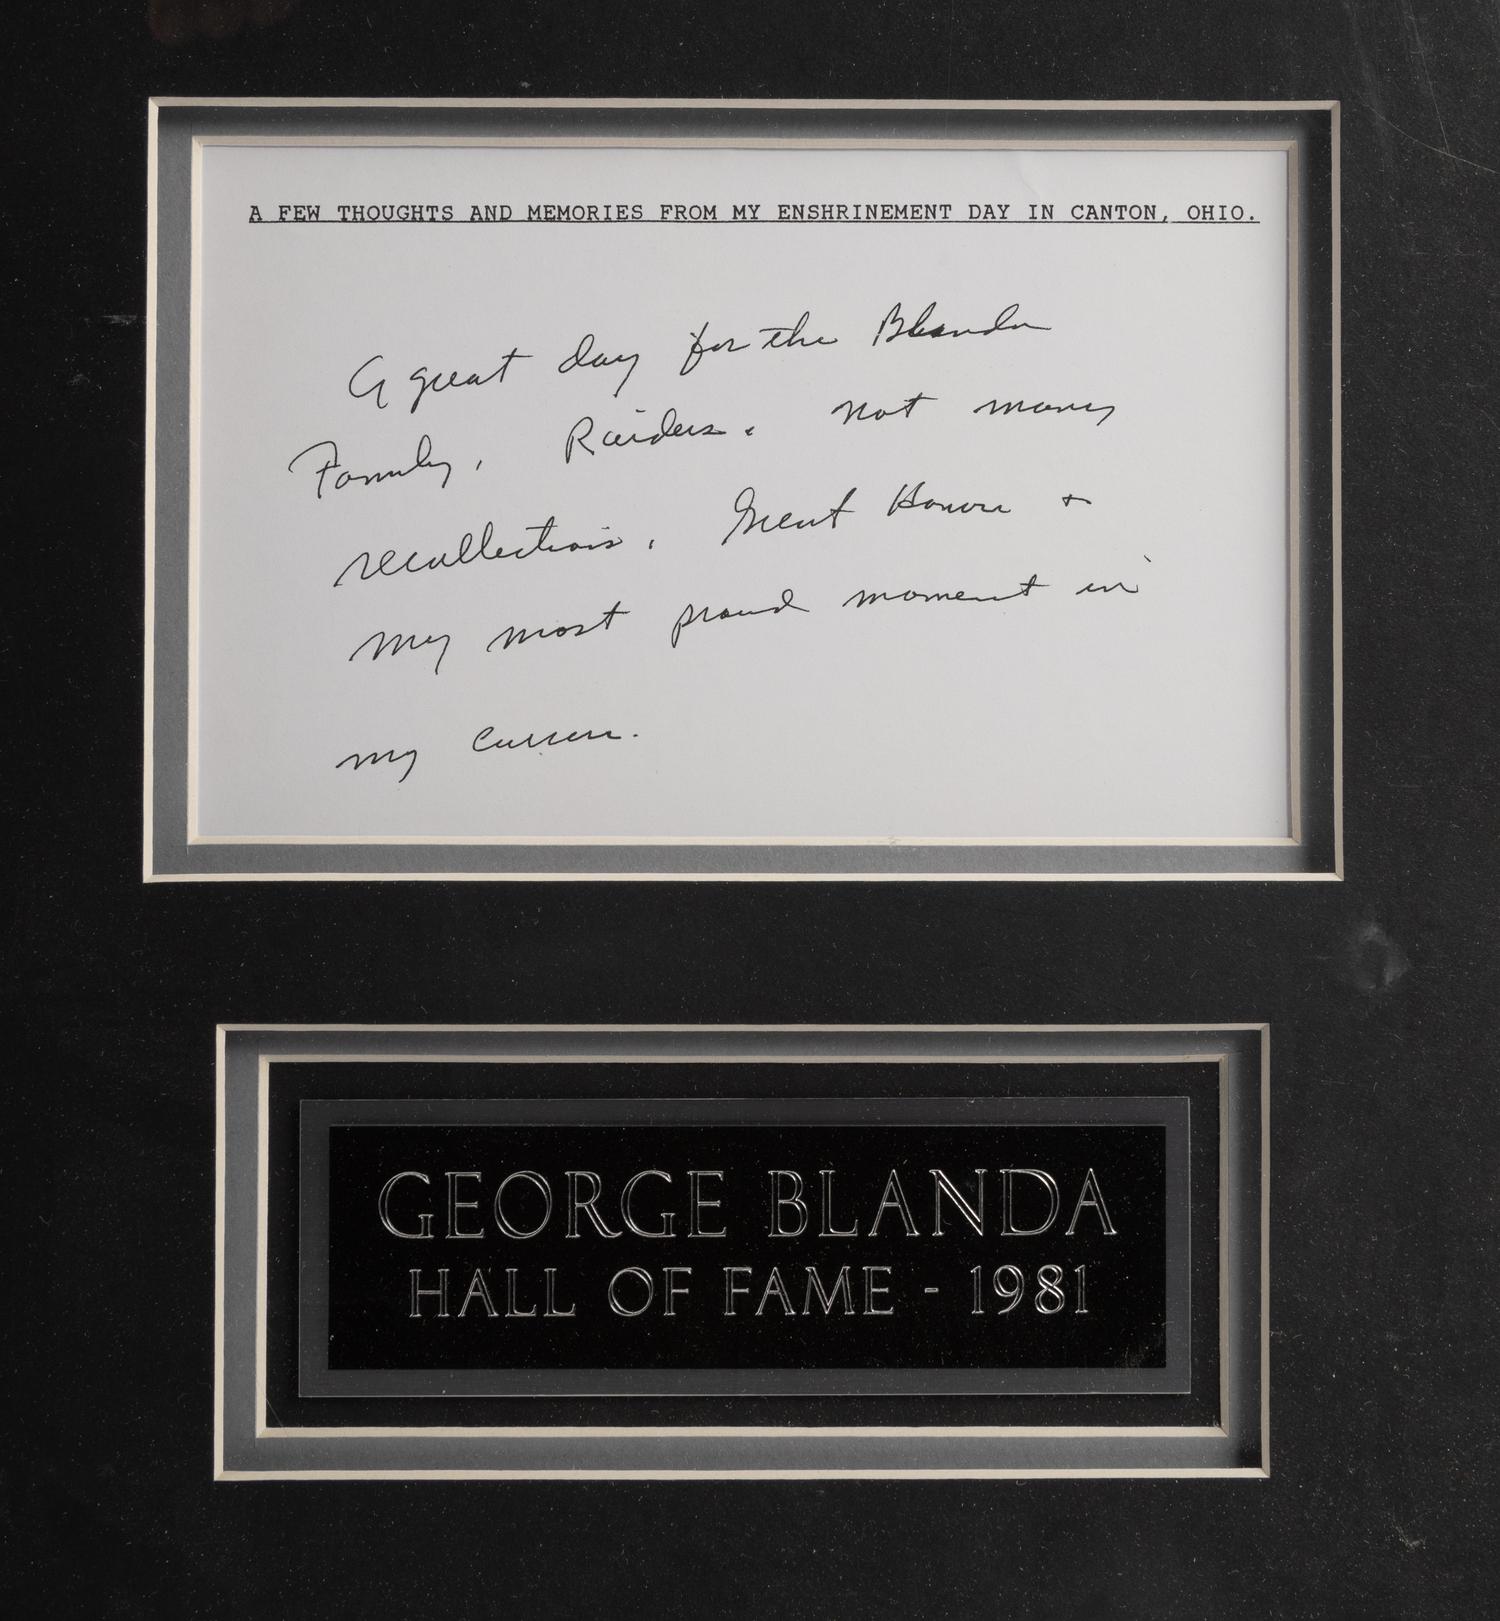 A FEW THOUGHTS AND MEMORIES FROM MY ENSHRINEMENT DAY IN CANTON, OHIO.
A great day for the Blanda
Family, Raiders. not many
recollections. Great Honor +
my most proud moment in
my career.
GEORGE BLANDA
HALL OF FAME - 1981